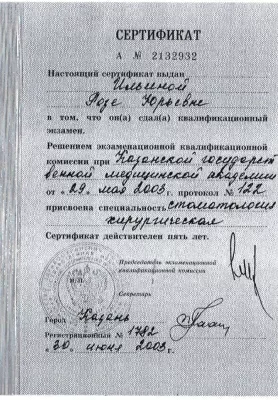 СЕРТИФИКАТ
А № 2132932
Настоящий сертификат выдан
Ильиной
Розе Юрьевне
в том, что он(а) сдал(а) квалификационный
экзамен.
Решением экзаменационной квалификационной
комиссии при Казанской государст
венной медицинской академии
от «29» мая 2003 г. протокол № 122
присвоена специальность стоматология
хирургическая
Сертификат действителен пять лет.
Председатель экзаменационной
квалификационной комиссии
М.П.
Секретарь
Город Казань
Регистрационный № 1782
«30» июня 2003 г.